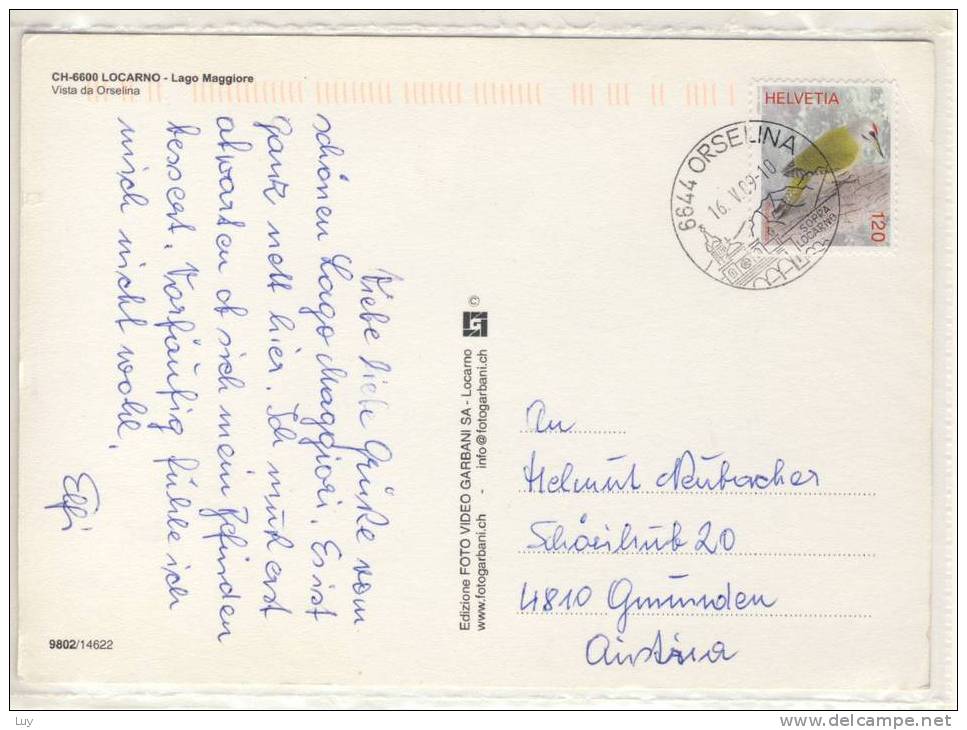 CH-6600 LOCARNO - Lago Maggiore
Vista da Orselina
HELVETIA
120
6644 ORSELINA
16. V. 09-10
SOPRA
LOCARNO
Liebe viele Grüße vom
schönen Lago Maggiori. Es ist
ganz nett hier. Ich muß erst
abwarten ob sich mein Befinden
bessert. Vorläufig fühle ich
mich nicht wohl.
Elfi
©
Edizione FOTO VIDEO GARBANI SA - Locarno
www.fotogarbani.ch - info@fotogarbani.ch
An
Helmut Neubacher
20
4810 Gmunden
Austria
9802/14622
Luy
www.delcampe.net